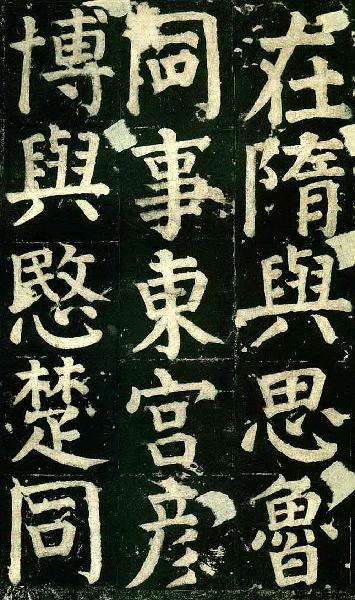 在隋與思魯
同事東宮彥
博與愍楚同